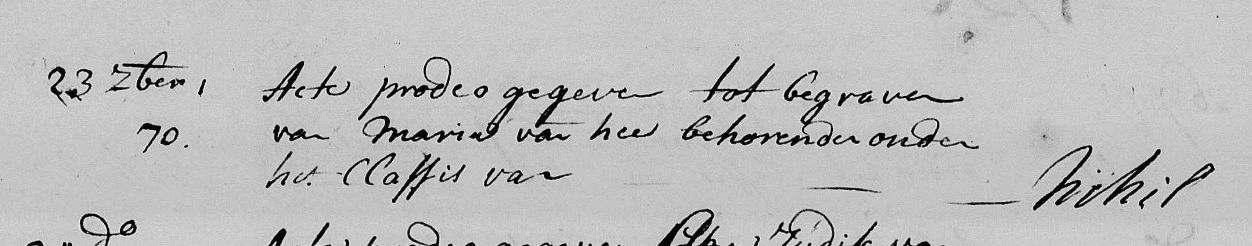 23 7ber,
70.
Acte prodeo gegeven tot begraven
van Maria van hee behorende onder
het Classis van — — Nihil
do
Acte prodeo gegeven van